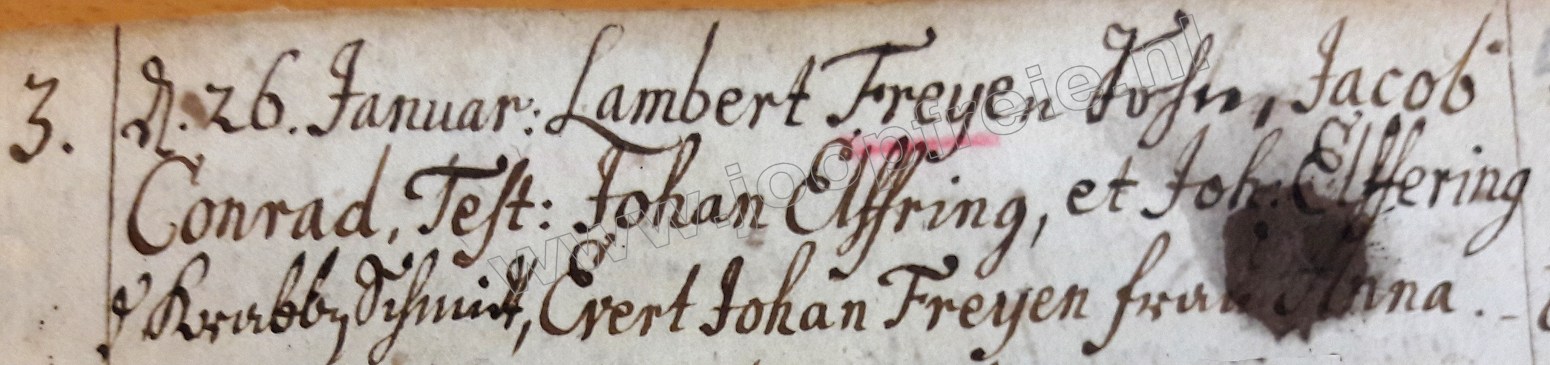 3. d. 26. Januar: Lambert Freyen Sohn, Jacob
Conrad, Test: Johan Elffring, et Joh: Elffering
Schmidt, Evert Johan Freyen frau Anna.
www.joopfreie.nl